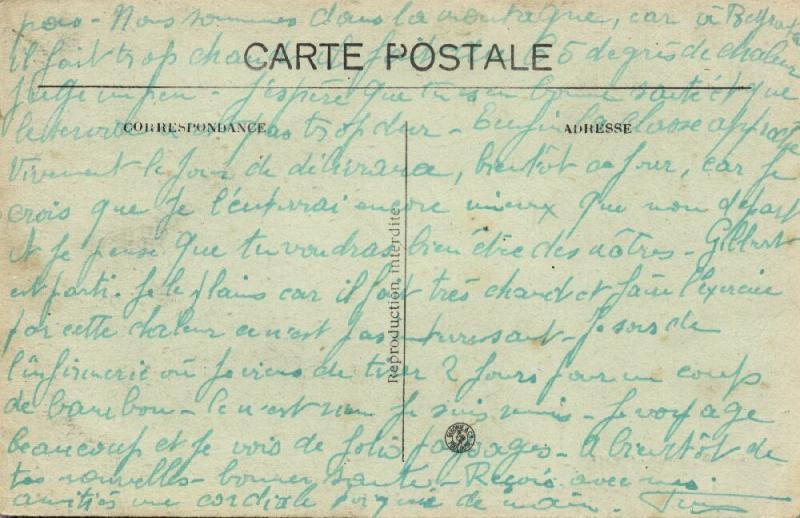 pas - Nous sommes dans la montagne, car à Belfort
il fait trop chaud 65 degrés de chaleur
CARTE POSTALE
Juge un peu - J'espère que tu es en bonne santé et que
le service pas trop dur - Enfin la classe approche
CORRESPONDANCE
ADRESSE
Vivement le jour de délivrance, bientôt ce jour, car je
crois que je l'enterrai encore mieux que mon départ
et je pense que tu voudras bien être des nôtres - Gilbert
est parti. Je le plains car il fait très chaud et faire l'exercice
par cette chaleur ce n'est pas intéressant - Je sors de
l'infirmerie où je viens de tirer 2 jours pour un coup
de bambou - Ce n'est rien je suis remis - Je voyage
beaucoup et je vois de jolis paysages - A bientôt de
tes nouvelles - bonne santé - Reçois avec mes
amitiés une cordiale poignée de main.
Reproduction interdite